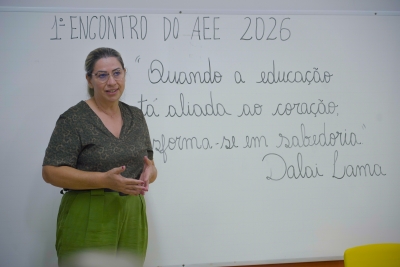 1º ENCONTRO DO AEE 2026
"Quando a educação
tá aliada ao coração,
sforma-se em sabedoria"
Dalai Lama